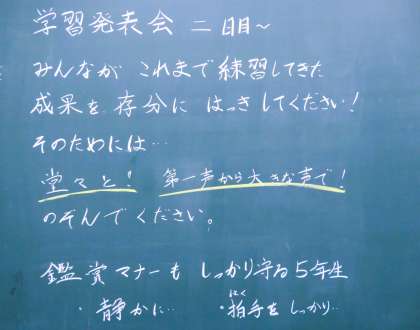 学習発表会 二日目～
みんなが これまで練習してきた
成果を 存分に はっきしてください!
そのためには…
堂々と! 第一声から大きな声で!
のぞんでください。
鑑賞マナーも しっかり守る5年生
・静かに… ・拍手を しっかり…